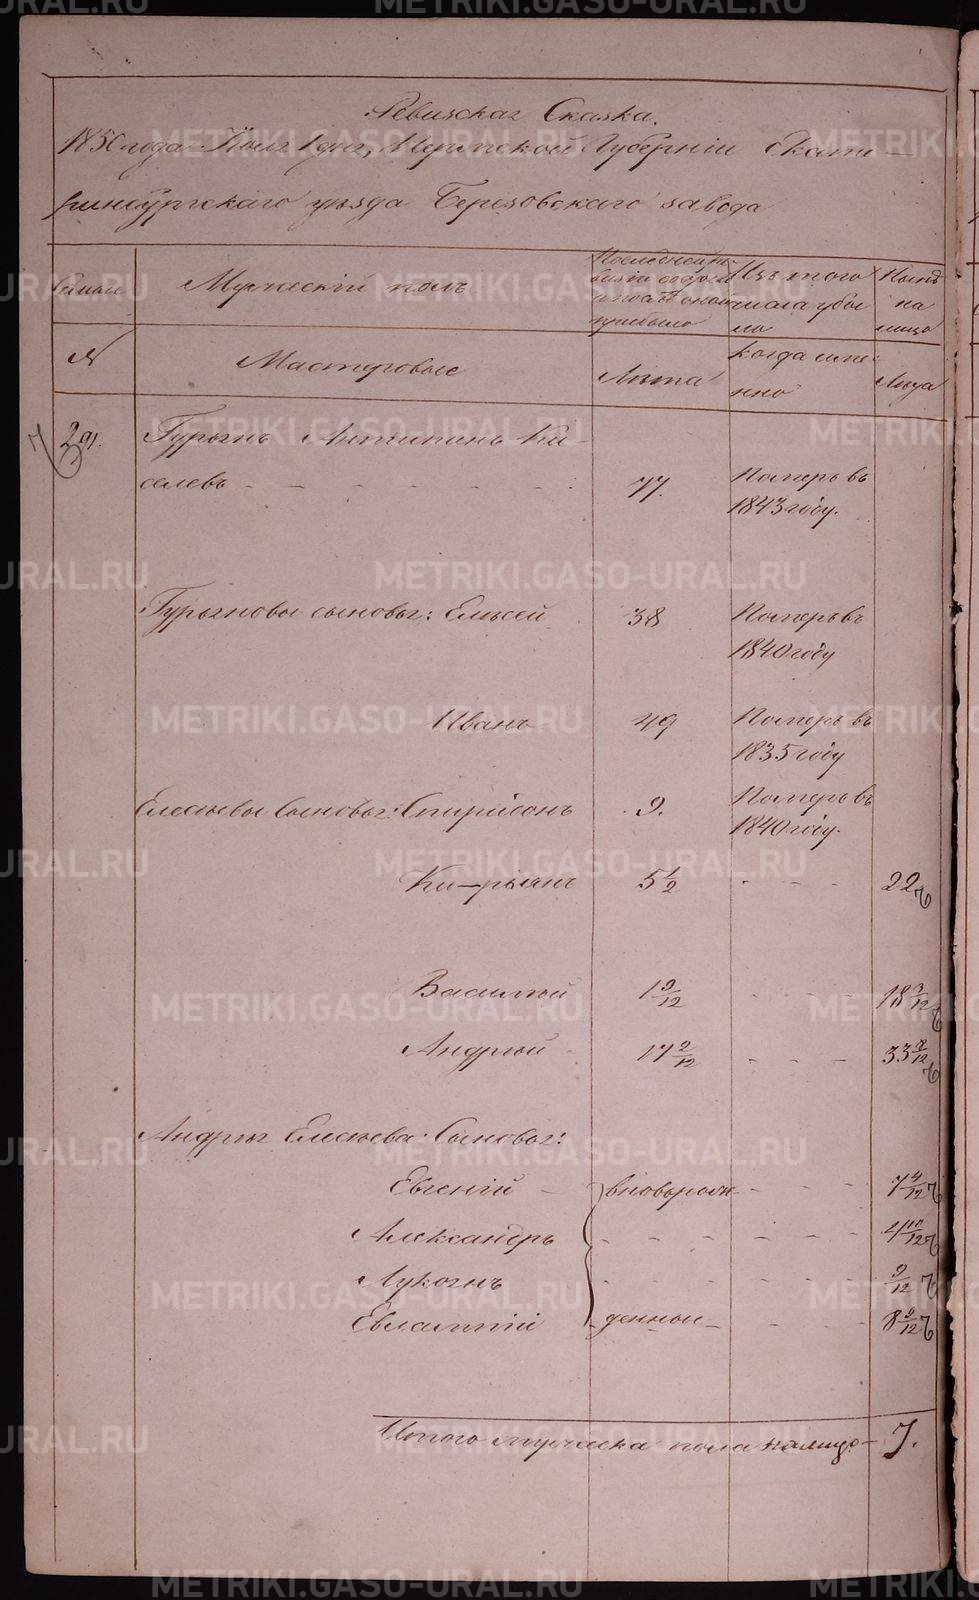 Ревизская Сказка.
1850 года Iюля 1 дня, Пермской Губернiи Екате-
ринбургскаго уѣзда Березовскаго завода
Семьи
Мужескiй полъ
Последней ре-
визiи состояло
и после оной
прибыло
Изъ того
числа убы
ло
Нынѣ
на
лицо
№
Мастеровые
Лѣта
когда име-
нно
Лѣта
291.
Гурьянъ Антипинъ Ки-
селевъ
77.
Померъ въ
1843 году.
Гурьяновы сыновья: Елисей
38
Померъ въ
1840 году
Иванъ
49
Померъ въ
1835 году
Елесѣевы Сыновья: Спиридонъ
9.
Померъ въ
1840 году.
Ки-рьянъ
5 1/2
22
Василiй
1 9/12
18 3/12
Андрей
17 2/12
33 2/12
Андрея Елесѣева: Сыновья:
Евгенiй
вноворож-
7 4/12
Александръ
4 10/12
Лукоянъ
9/12
Евлампiй
денные
8 9/12
Итого мужеска пола налицо-
7.
METRIKI.GASO-URAL.RU